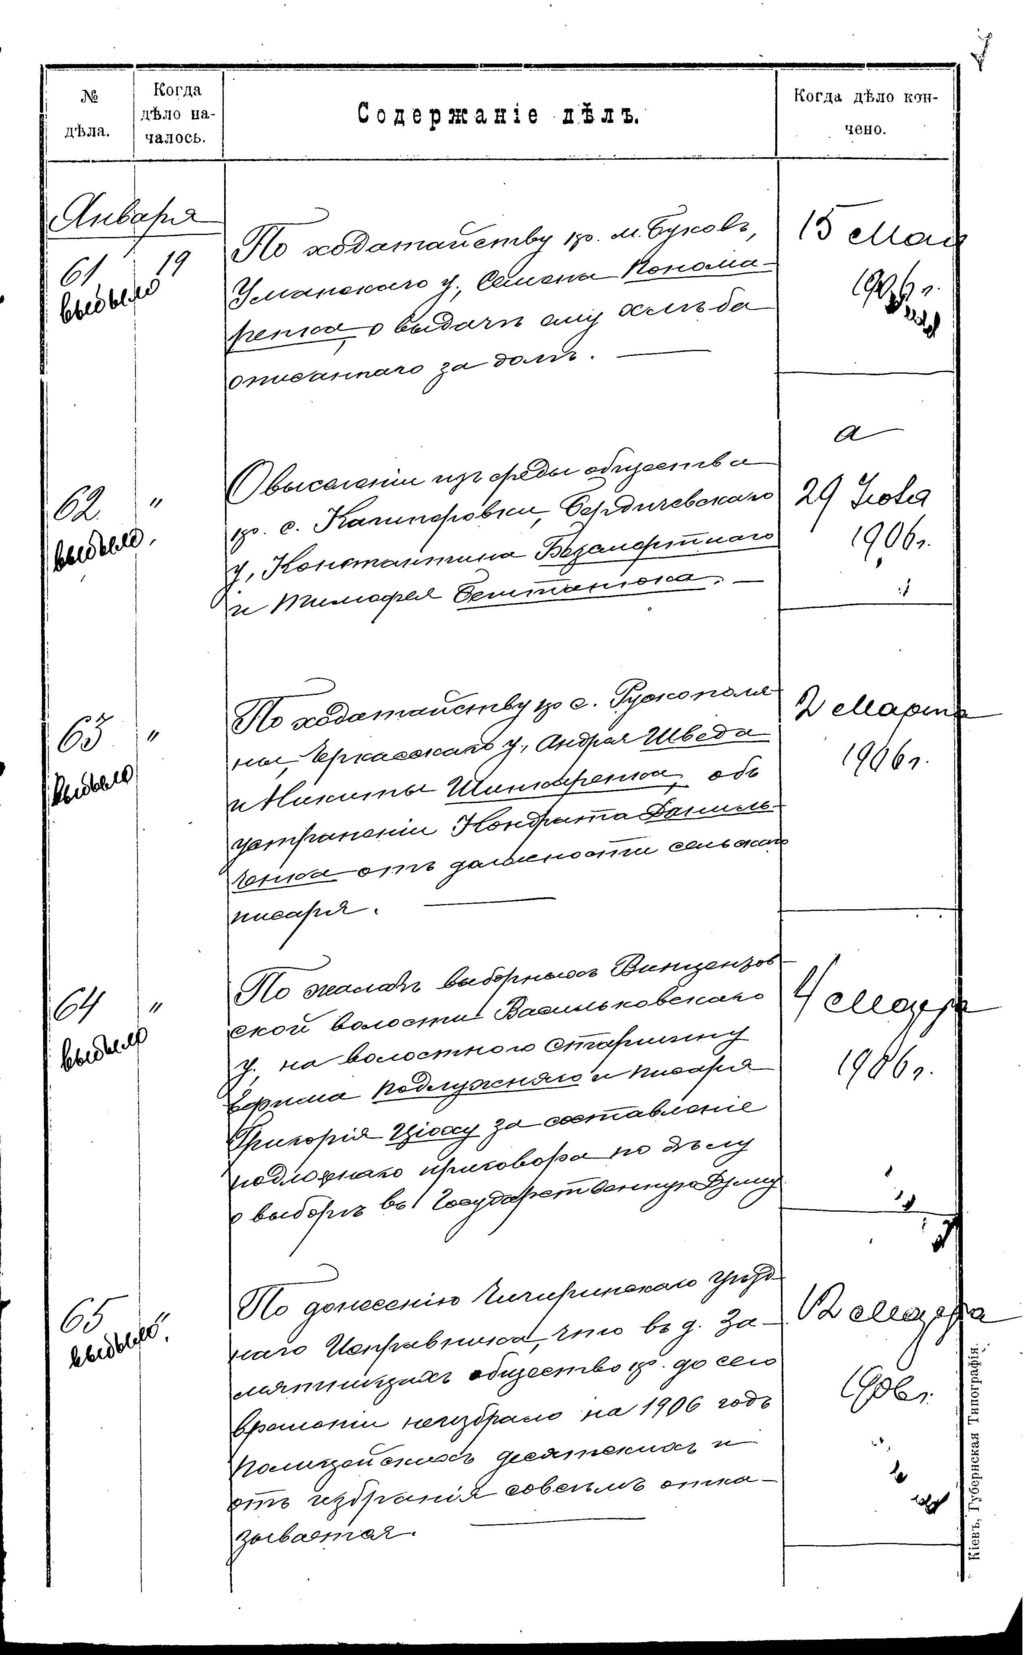 7
№ дѣла.
Когда дѣло началось.
Содержаніе дѣлъ.
Когда дѣло кончено.
Января
61 19
выбыло
По ходатайству кр. м. Буковъ,
Уманскаго у., Семена Понома-
ренка, о выдачѣ ему хлѣба
описаннаго за долгъ.
15 Мая
1906 г.
62 "
выбыло.
О выселеніи изъ среды общества
кр. с. Кашперовки, Бердичевскаго
у, Константина Безсмертнаго
и Тимофея Бештанюка.
29
1906 г.
63 "
выбыло
По ходатайству кр с. Рускополя-
ны, Черкасскаго у, Андрея Шведа
и Никиты Шинкаренка, объ
устраненіи Кондрата Даниль-
ченка отъ должности сельскаго
писаря.
2 Марта
1906 г.
64 "
выбыло
По жалобѣ выборныхъ Винцентов-
ской волости Васильковскаго
у, на волостного Старшину
Ефима Подлужняго и писаря
Григорія Цюху за составленіе
подложнаго приговора по дѣлу
о выборѣ въ Государственную Думу
4 Марта
1906 г.
65 "
выбыло.
По донесенію Чигиринскаго уѣзд-
наго Исправника, что въ д. За-
мятницахъ общество кр. до сего
времени неизбрало на 1906 годъ
Полицейскихъ десятскихъ и
отъ избранія совсѣмъ отка-
зывается.
12 Марта
1906 г.
Кіевъ, Губернская Типографія.